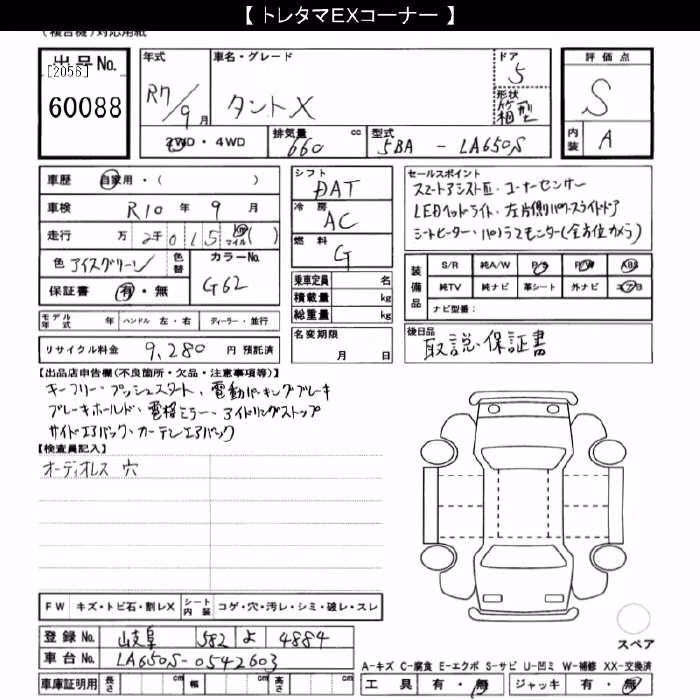 【 トレタマEXコーナー 】
(複合機)対応用紙
出品No.
[2056]
60088
年式
R7/9月
車名・グレード
タントX
ドア
5
形状
箱型
評価点
S
内装
A
2WD・4WD
排気量 660 cc
型式 5BA - LA650S
車歴 自家用・( )
車検 R10 年 9 月
走行 万 2千 0 1 5 km マイル ( )
色 アイスグリーン 色替
カラーNo. G62
保証書 有・無
シフト DAT
冷房 AC
燃料 G
乗車定員 名
積載量 kg
総重量 kg
セールスポイント
スマートアシストⅢ・コーナーセンサー
LEDヘッドライト・左片側パワースライドドア
シートヒーター・パノラマモニター(全方位カメラ)
装備品
S/R 純A/W P/S P/W ABS
純TV 純ナビ 革シート 外ナビ エアB
ナビ型番:
モデル年式 年 ハンドル 左・右 ディーラー・並行
リサイクル料金 9,280 円 預託済
名変期限 月 日
後日品
取説、保証書
【出品店申告欄(不良箇所・欠品・注意事項等)】
キーフリー・プッシュスタート、電動パーキングブレーキ
ブレーキホールド・電格ミラー・アイドリングストップ
サイドエアバック・カーテンエアバック
【検査員記入】
オーディオレス 穴
FW キズ・トビ石・割レX シート内装 コゲ・穴・汚レ・シミ・破レ・スレ
登録No. 岐阜 582 よ 4884
車台No. LA650S-0542603
車庫証明用 長さ cm 幅 cm 高さ cm
スペア
A-キズ C-腐食 E-エクボ S-サビ U-凹ミ W-補修 XX-交換済
工具 有・無 ジャッキ 有・無